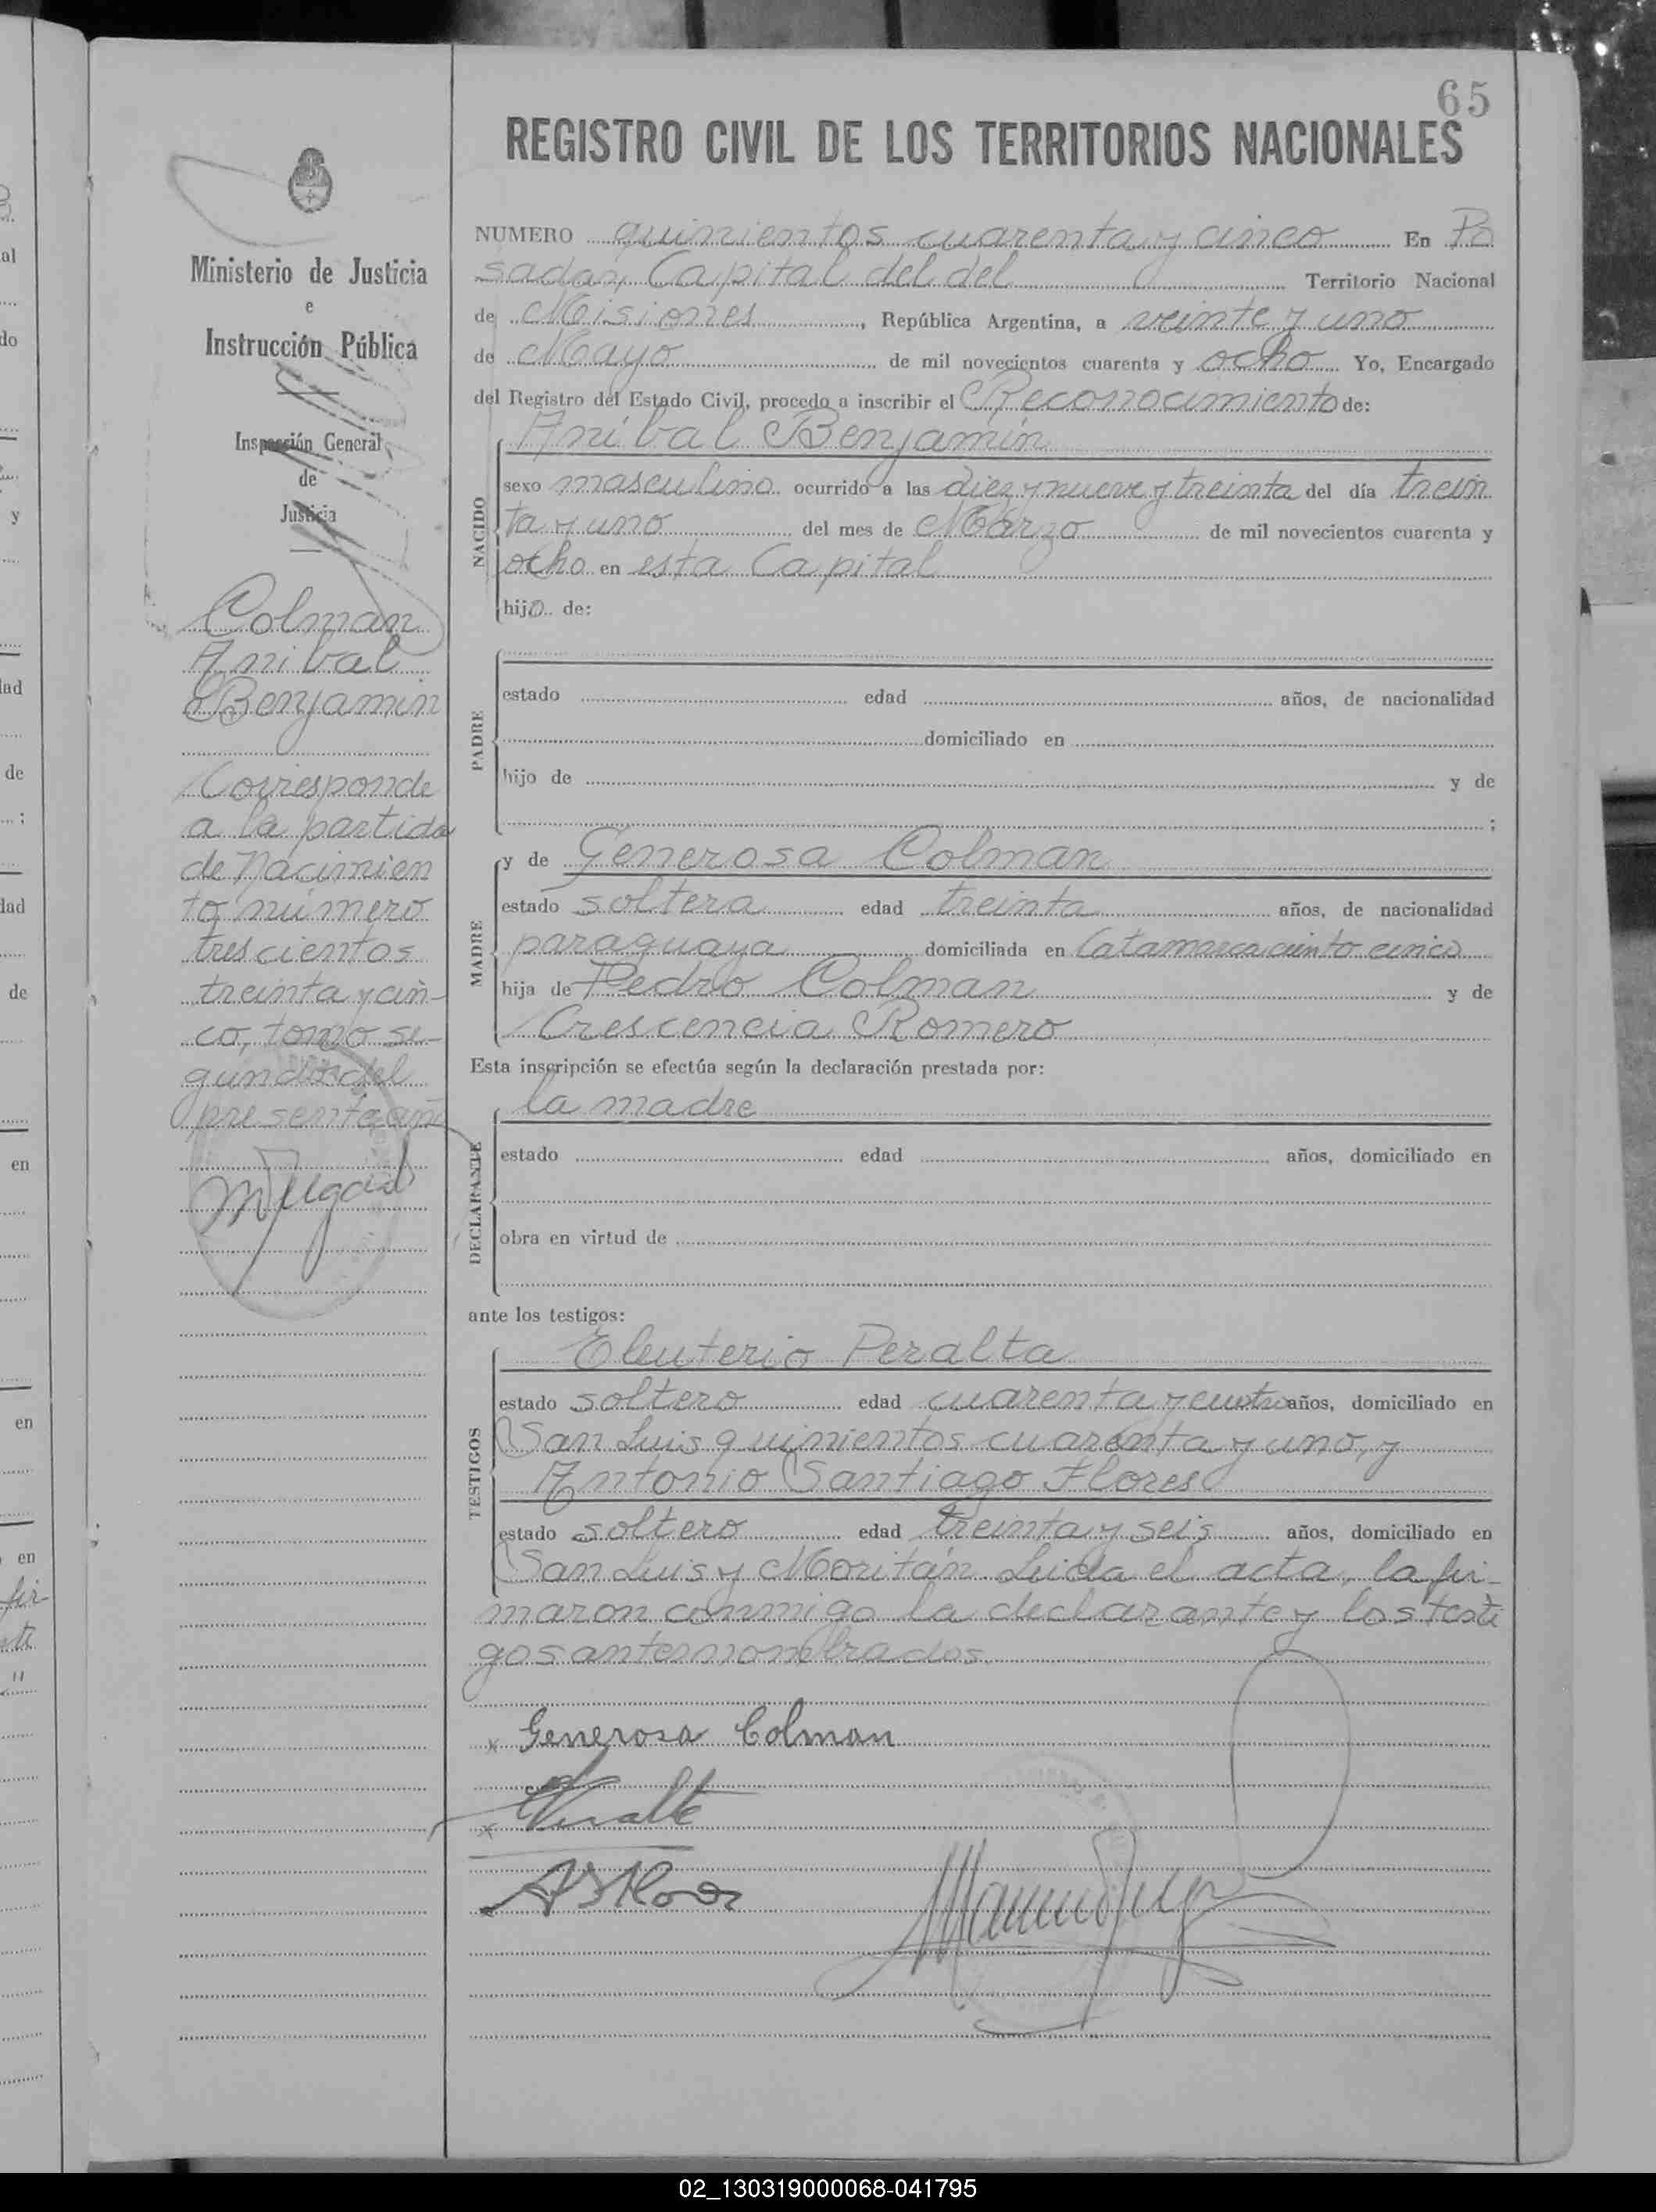 65
REGISTRO CIVIL DE LOS TERRITORIOS NACIONALES
Ministerio de Justicia
e
Instrucción Pública
Inspección General
de
Justicia
Colman
Anibal
Benjamin
Corresponde
a la partida
de nacimien
to número
trescientos
treinta y cin-
co, tomo se-
gundo del
presente año
NUMERO quinientos cuarenta y cinco En Po
sadas, Capital del del Territorio Nacional
de Misiones, República Argentina, a veinte y uno
de Mayo de mil novecientos cuarenta y ocho Yo, Encargado
del Registro del Estado Civil, procedo a inscribir el Reconocimiento de:
NACIDO
Aníbal Benjamín
sexo masculino ocurrido a las diez y nueve y treinta del día trein
ta y uno del mes de Marzo de mil novecientos cuarenta y
ocho en esta Capital
hijo de:
PADRE
estado edad años, de nacionalidad
domiciliado en
hijo de y de
;
MADRE
y de Generosa Colman
estado soltera edad treinta años, de nacionalidad
paraguaya domiciliada en Catamarca ciento cinco
hija de Pedro Colman y de
Crescencia Romero
Esta inscripción se efectúa según la declaración prestada por:
DECLARANTE
la madre
estado edad años, domiciliado en
obra en virtud de
ante los testigos:
TESTIGOS
Eleuterio Peralta
estado soltero edad cuarenta y cuatro años, domiciliado en
San Luis quinientos cuarenta y uno, y
Antonio Santiago Flores
estado soltero edad treinta y seis años, domiciliado en
San Luis y Moritán. Leída el acta, la fir-
maron conmigo la declarante y los testi
gos antenombrados.
x Generosa Colman
x EPeralta
ASFlores
02_130319000068-041795